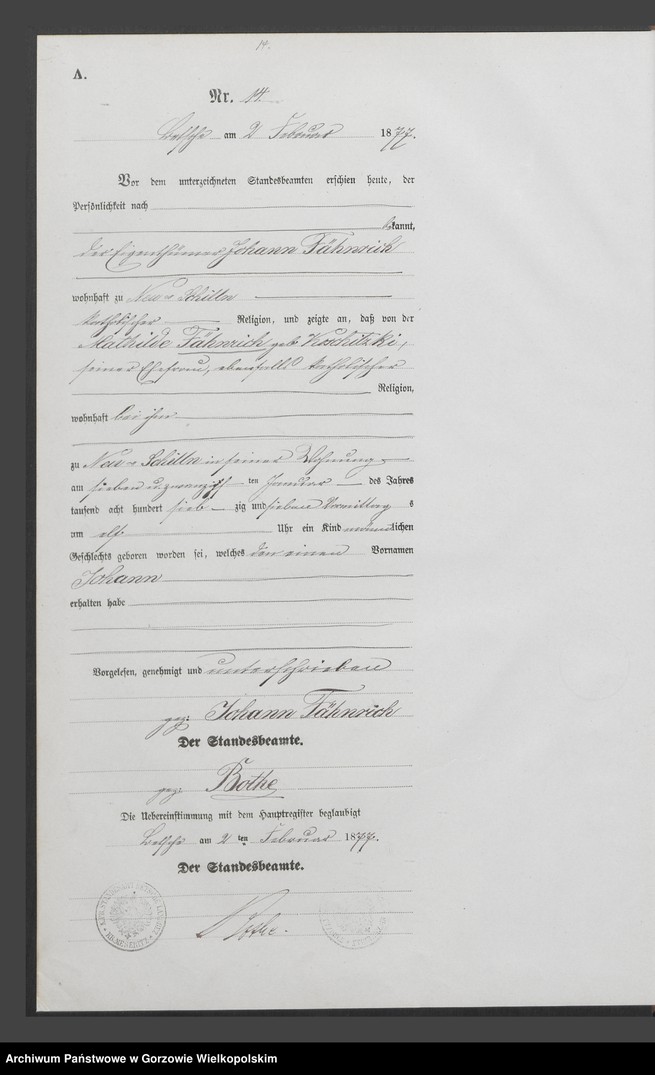 14.
A.
Nr. 14.
Betsche am 2 Februar 1877.
Vor dem unterzeichneten Standesbeamten erschien heute, der
Persönlichkeit nach
bekannt,
der Eigenthümer Johann Fähnrich
wohnhaft zu Neu-Schilln
katholischer Religion, und zeigte an, daß von der
Mathilde Fähnrich geb. Koschitzki,
seiner Ehefrau, ebenfalls katholischer
Religion,
wohnhaft bei ihm
zu Neu-Schilln in seiner Wohnung
am sieben u. zwanzigsten Januar des Jahres
tausend acht hundert siebzig und sieben Vormittags
um elf Uhr ein Kind männlichen
Geschlechts geboren worden sei, welches den einen Vornamen
Johann
erhalten habe
Vorgelesen, genehmigt und unterschrieben
gez: Johann Fähnrich
Der Standesbeamte.
gez: Bothe
Die Uebereinstimmung mit dem Hauptregister beglaubigt
Betsche am 2 ten Februar 1877.
Der Standesbeamte.
Bothe.
KR. MESERITZ
Archiwum Państwowe w Gorzowie Wielkopolskim